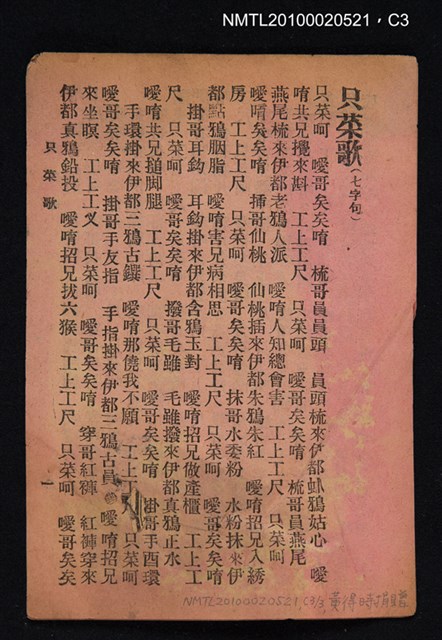 NMTL20100020521，C3
只菜歌（七字句）
只菜呵　噯哥矣矣唷　梳哥員員頭　員頭梳來伊都 鴉姑心　噯
唷共兄攪來斟　工上工尺　只菜呵　噯哥矣矣唷　梳哥員燕尾
燕尾梳來伊都老鴉人派　噯唷人知總會害　工上工尺　只菜呵
噯哥矣矣唷　插哥仙桃　仙桃插來伊都朱鴉朱紅　噯唷招兄入綉
房　工上工尺　只菜呵　噯哥矣矣唷　抹哥水委粉　水粉抹來伊
都點鴉胭脂　噯唷害兄病相思　工上工尺　只菜呵　噯哥矣矣唷
掛哥耳鈎　耳鈎掛來伊都含鴉玉對　噯唷招兄做產櫃　工上工
尺　只菜呵　噯哥矣矣唷　撥哥毛雖　毛雖撥來伊都真鴉正水
噯唷共兄搥脚腿　工上工尺　只菜呵　噯哥矣矣唷　掛哥手酉環
手環掛來伊都三鴉古鐶　噯唷那僥我不願　工上工尺　只菜呵
噯哥矣矣唷　掛哥手友指　手指掛來伊都三鴉古員　噯唷招兄
來坐瞑　工上工叉　只菜呵　噯哥矣矣唷　穿哥紅褲　紅褲穿來
伊都真鴉鉛投　噯唷招兄拔六猴　工上工尺　只菜呵　噯哥矣矣
只菜歌
一
NMTL20100020521 C3/3 黃得時捐贈